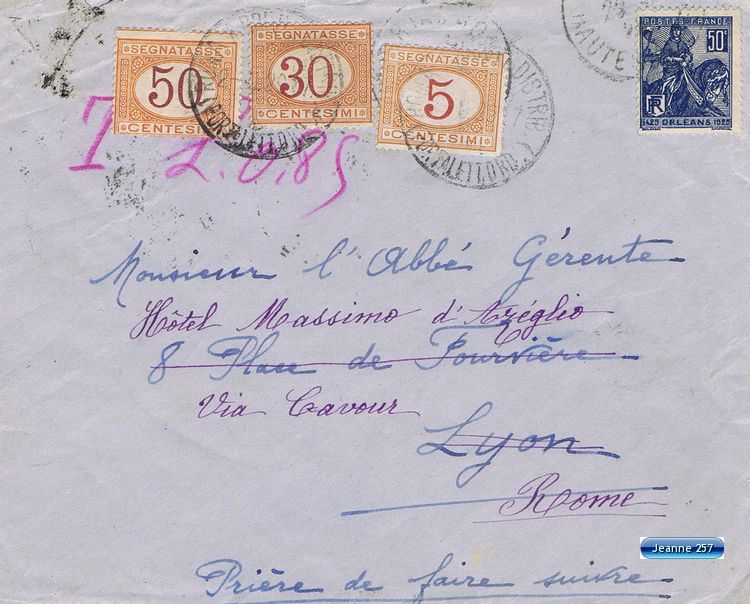 SEGNATASSE
50
CENTESIMI
SEGNATASSE
30
CENTESIMI
SEGNATASSE
5
CENTESIMI
POSTES FRANCE
50c
RF
1429 ORLEANS 1929
HAUTE
DISTRIB
T L. 0.85
Monsieur l'Abbé Gérente
Hôtel Massimo d'Azéglio
8 Place de Fourvière
Via Cavour
Lyon
Rome
Prière de faire suivre
Jeanne 257